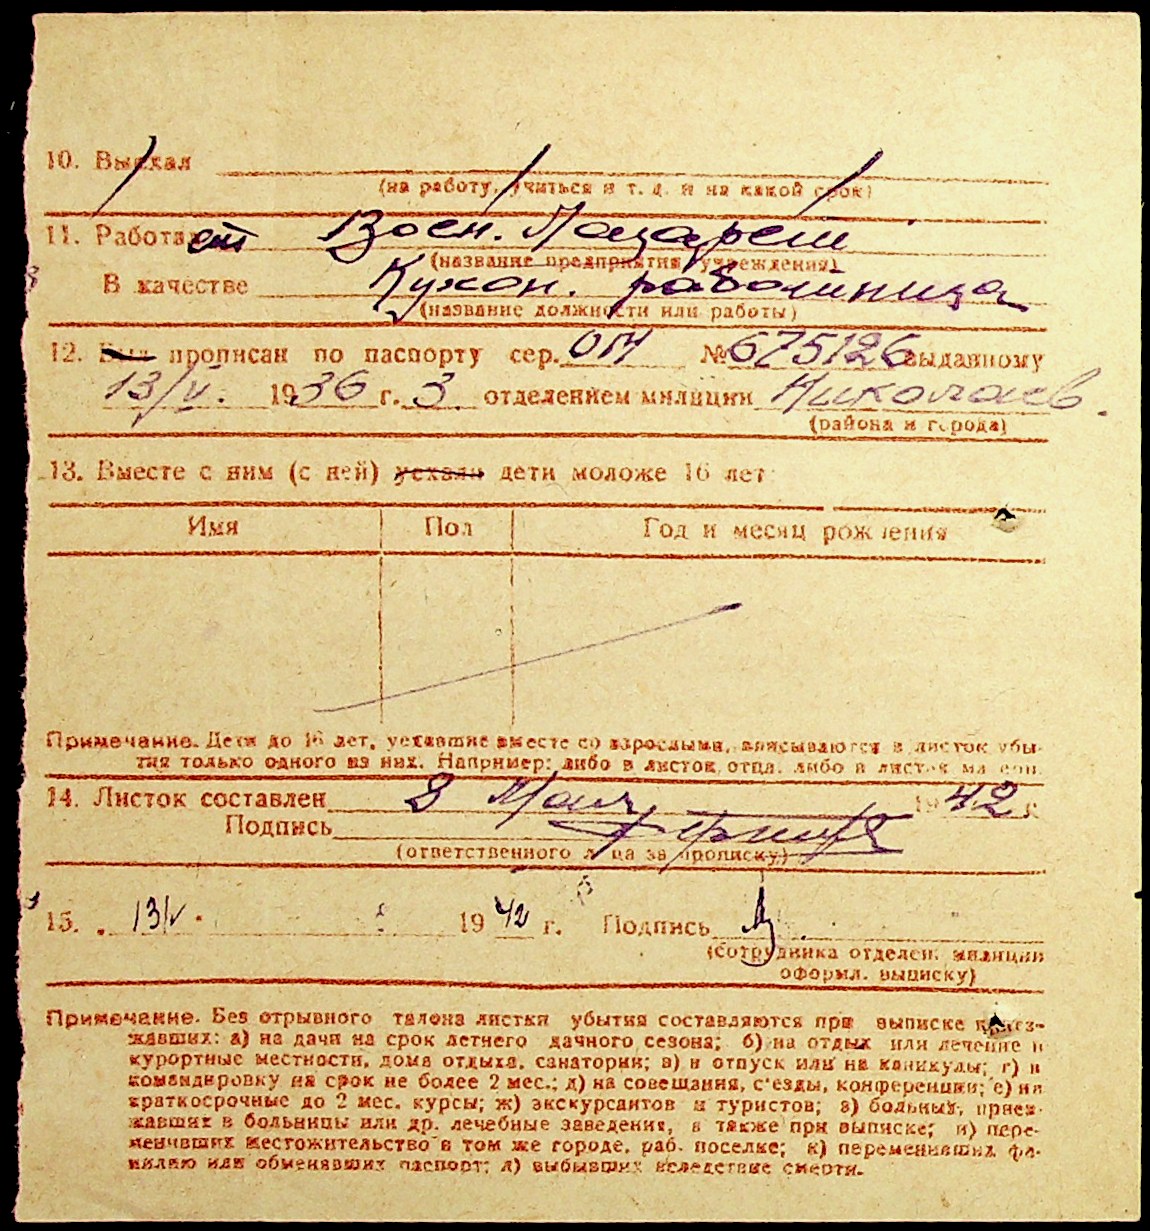 10. Выехал
(на работу, учиться и т. д. и на какой срок)
11. Работает Воен. Лазарет
(название предприятия, учреждения)
В качестве Кухон. работница
(название должности или работы)
12. Был прописан по паспорту сер. ОМ № 675126 выданному
13/V. 1936 г. 3 отделением милиции Николаев.
(района и города)
13. Вместе с ним (с ней) уехали дети моложе 16 лет
Имя Пол Год и месяц рождения
Примечание. Дети до 16 лет, уехавшие вместе со взрослыми, вписываются в листок убы-
тия только одного из них. Например: либо в листок отца, либо в листок матери.
14. Листок составлен 8 Мая 1942 г
Подпись
(ответственного лица за прописку)
15. 13/V 1942 г. Подпись
(сотрудника отделен. милиции
оформл. выписку)
Примечание. Без отрывного талона листки убытия составляются при выписке приез-
жавших: а) на дачи на срок летнего дачного сезона; б) на отдых или лечение в
курортные местности, дома отдыха, санатории; в) в отпуск или на каникулы; г) в
командировку на срок не более 2 мес.; д) на совещания, с'езды, конференции; е) на
краткосрочные до 2 мес. курсы; ж) экскурсантов и туристов; з) больных, приез-
жавших в больницы или др. лечебные заведения, а также при выписке; и) пере-
менивших местожительство в том же городе, раб. поселке; к) переменивших фа-
милию или обменявших паспорт; л) выбывших вследствие смерти.